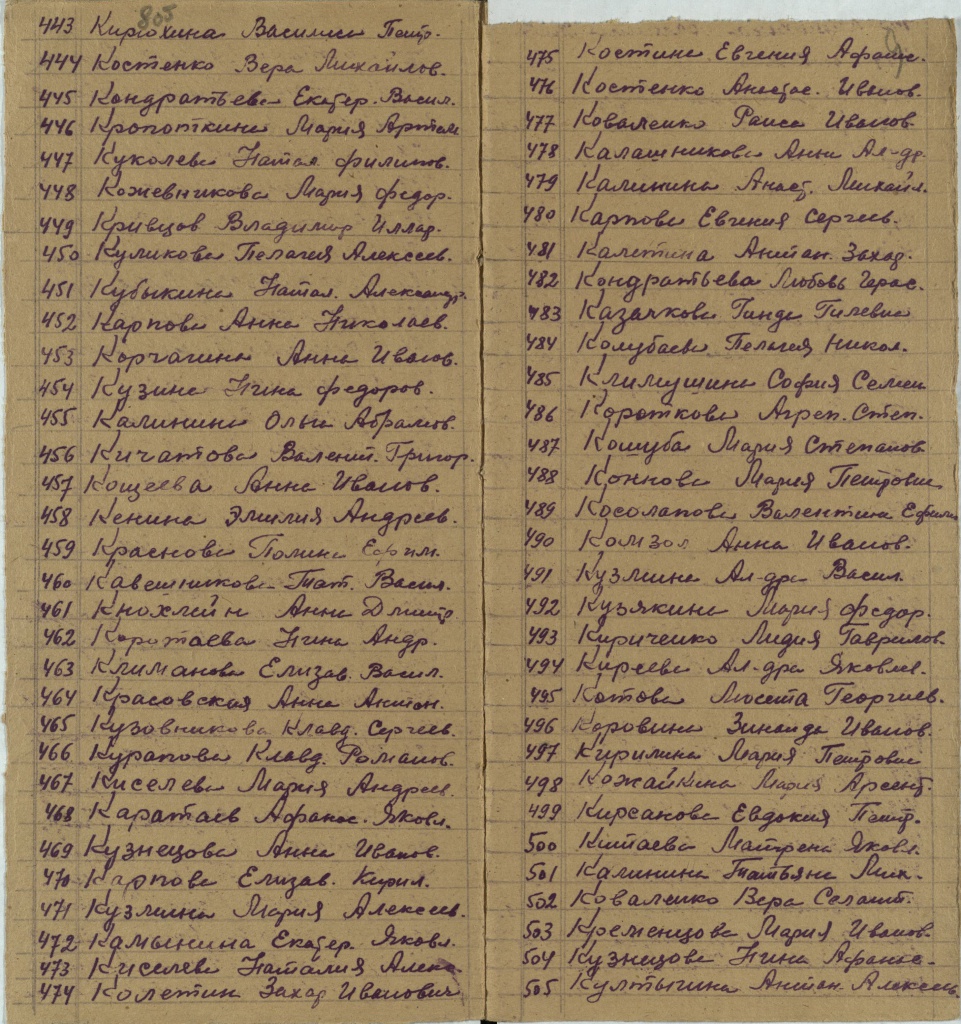 805
443 Кирюхина Василиса Петр.
444 Костенко Вера Михайлов.
445 Кондратьева Екатер. Васил.
446 Кропоткина Мария Артем
447 Куколева Натал. Филипов.
448 Кожевникова Мария Федор.
449 Кривцов Владимир
450 Куликова Пелагея Алексеев.
451 Кубыкина Натал. Александр.
452 Карпова Анна Николаев.
453 Корчагина Анна Иванов.
454 Кузина Нина Федоров.
455 Калинина Ольга Абрамов.
456 Кичатова Валент. Григор.
457 Кощеева Анна Иванов.
458 Кенина Эмилия Андреев.
459 Краснова Полина Ефим.
460 Кавешникова Тат. Васил.
461 Кнохлейн Анна Дмитр
462 Коротаева Нина Андр.
463 Климанова Елизав. Васил.
464 Красовская Анна Антон.
465 Кузовникова Клавд. Сергеев.
466 Курапова Клавд. Романов.
467 Киселева Мария Андреев.
468 Каратаев Афанас. Яковл.
469 Кузнецова Анна Иванов.
470 Карпова Елизав. Кирил.
471 Кузмина Мария Алексеев.
472 Камынина Екатер. Яковл.
473 Киселева Наталия Алекс.
474 Колетин Захар Иванович
475 Костина Евгения Афанас.
476 Костенко Анастас. Иванов.
477 Коваленко Раиса Иванов.
478 Калашникова Анна Ал-др.
479 Калинина Анаст. Михайл.
480 Карпова Евгения Сергеев.
481 Калетина Антон. Захар.
482 Кондратьева Любовь Герас.
483 Казачкова Гинда Гилевна
484 Колубаева Пелагея Никол.
485 Климушина София Семен
486 Короткова Агреп. Степ.
487 Кошуба Мария Степанов.
488 Коннова Мария Петровна
489 Косолапова Валентина Ефимо
490 Колзол Анна Иванов.
491 Кузмина Ал-дра Васил.
492 Кузякина Мария Федор.
493 Кириченко Лидия Гаврилов.
494 Киреева Ал-дра Яковлев.
495 Котова Люсета Георгиев.
496 Коровина Зинаида Иванов.
497 Кирилина Мария Петровна
498 Кожайкина Мария Арсент.
499 Кирсанова Евдокия Петр.
500 Китаева Матрена Яковл.
501 Калинина Татьяна Мих.
502 Коваленко Вера Селант.
503 Кременцова Мария Иванов.
504 Кузнецова Нина Афанас.
505 Култыгина Антон. Алексеев.